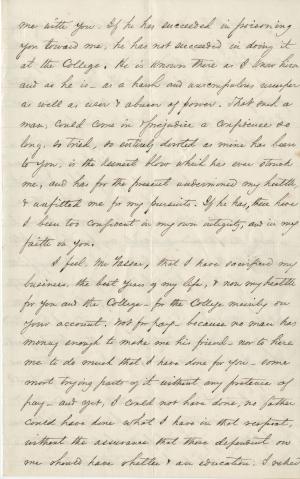 me with you. If he has succeeded in poisoning
you toward me, he has not succeeded in doing it
at the College. He is known there as I know him
and as he is – as a harsh and unscrupulous usurper
as well as user & abuser of power. That such a
man, could come in & prejudice a confidence so
long, so tried, so entirely devoted as mine has been
to you, is the heaviest blow which has ever struck
me, and has for the present undermined my health,
& unfitted me for my pursuits. If he has, then have
I been too confident in my own integrity, and in my
faith in you.
I feel, Mr Vassar, that I have sacrificed my
business, the best years of my life, & now my health
for you and the College – for the College mainly on
your account. Not for pay – because no man has
money enough to make me his friend nor to hire
me to do much that I have done for you – some
most trying parts of it without any pretence of
pay – and yet, I could not have done, no father
could have done what I have in that respect,
without the assurance that those dependent on
me should have shelter & an education. I